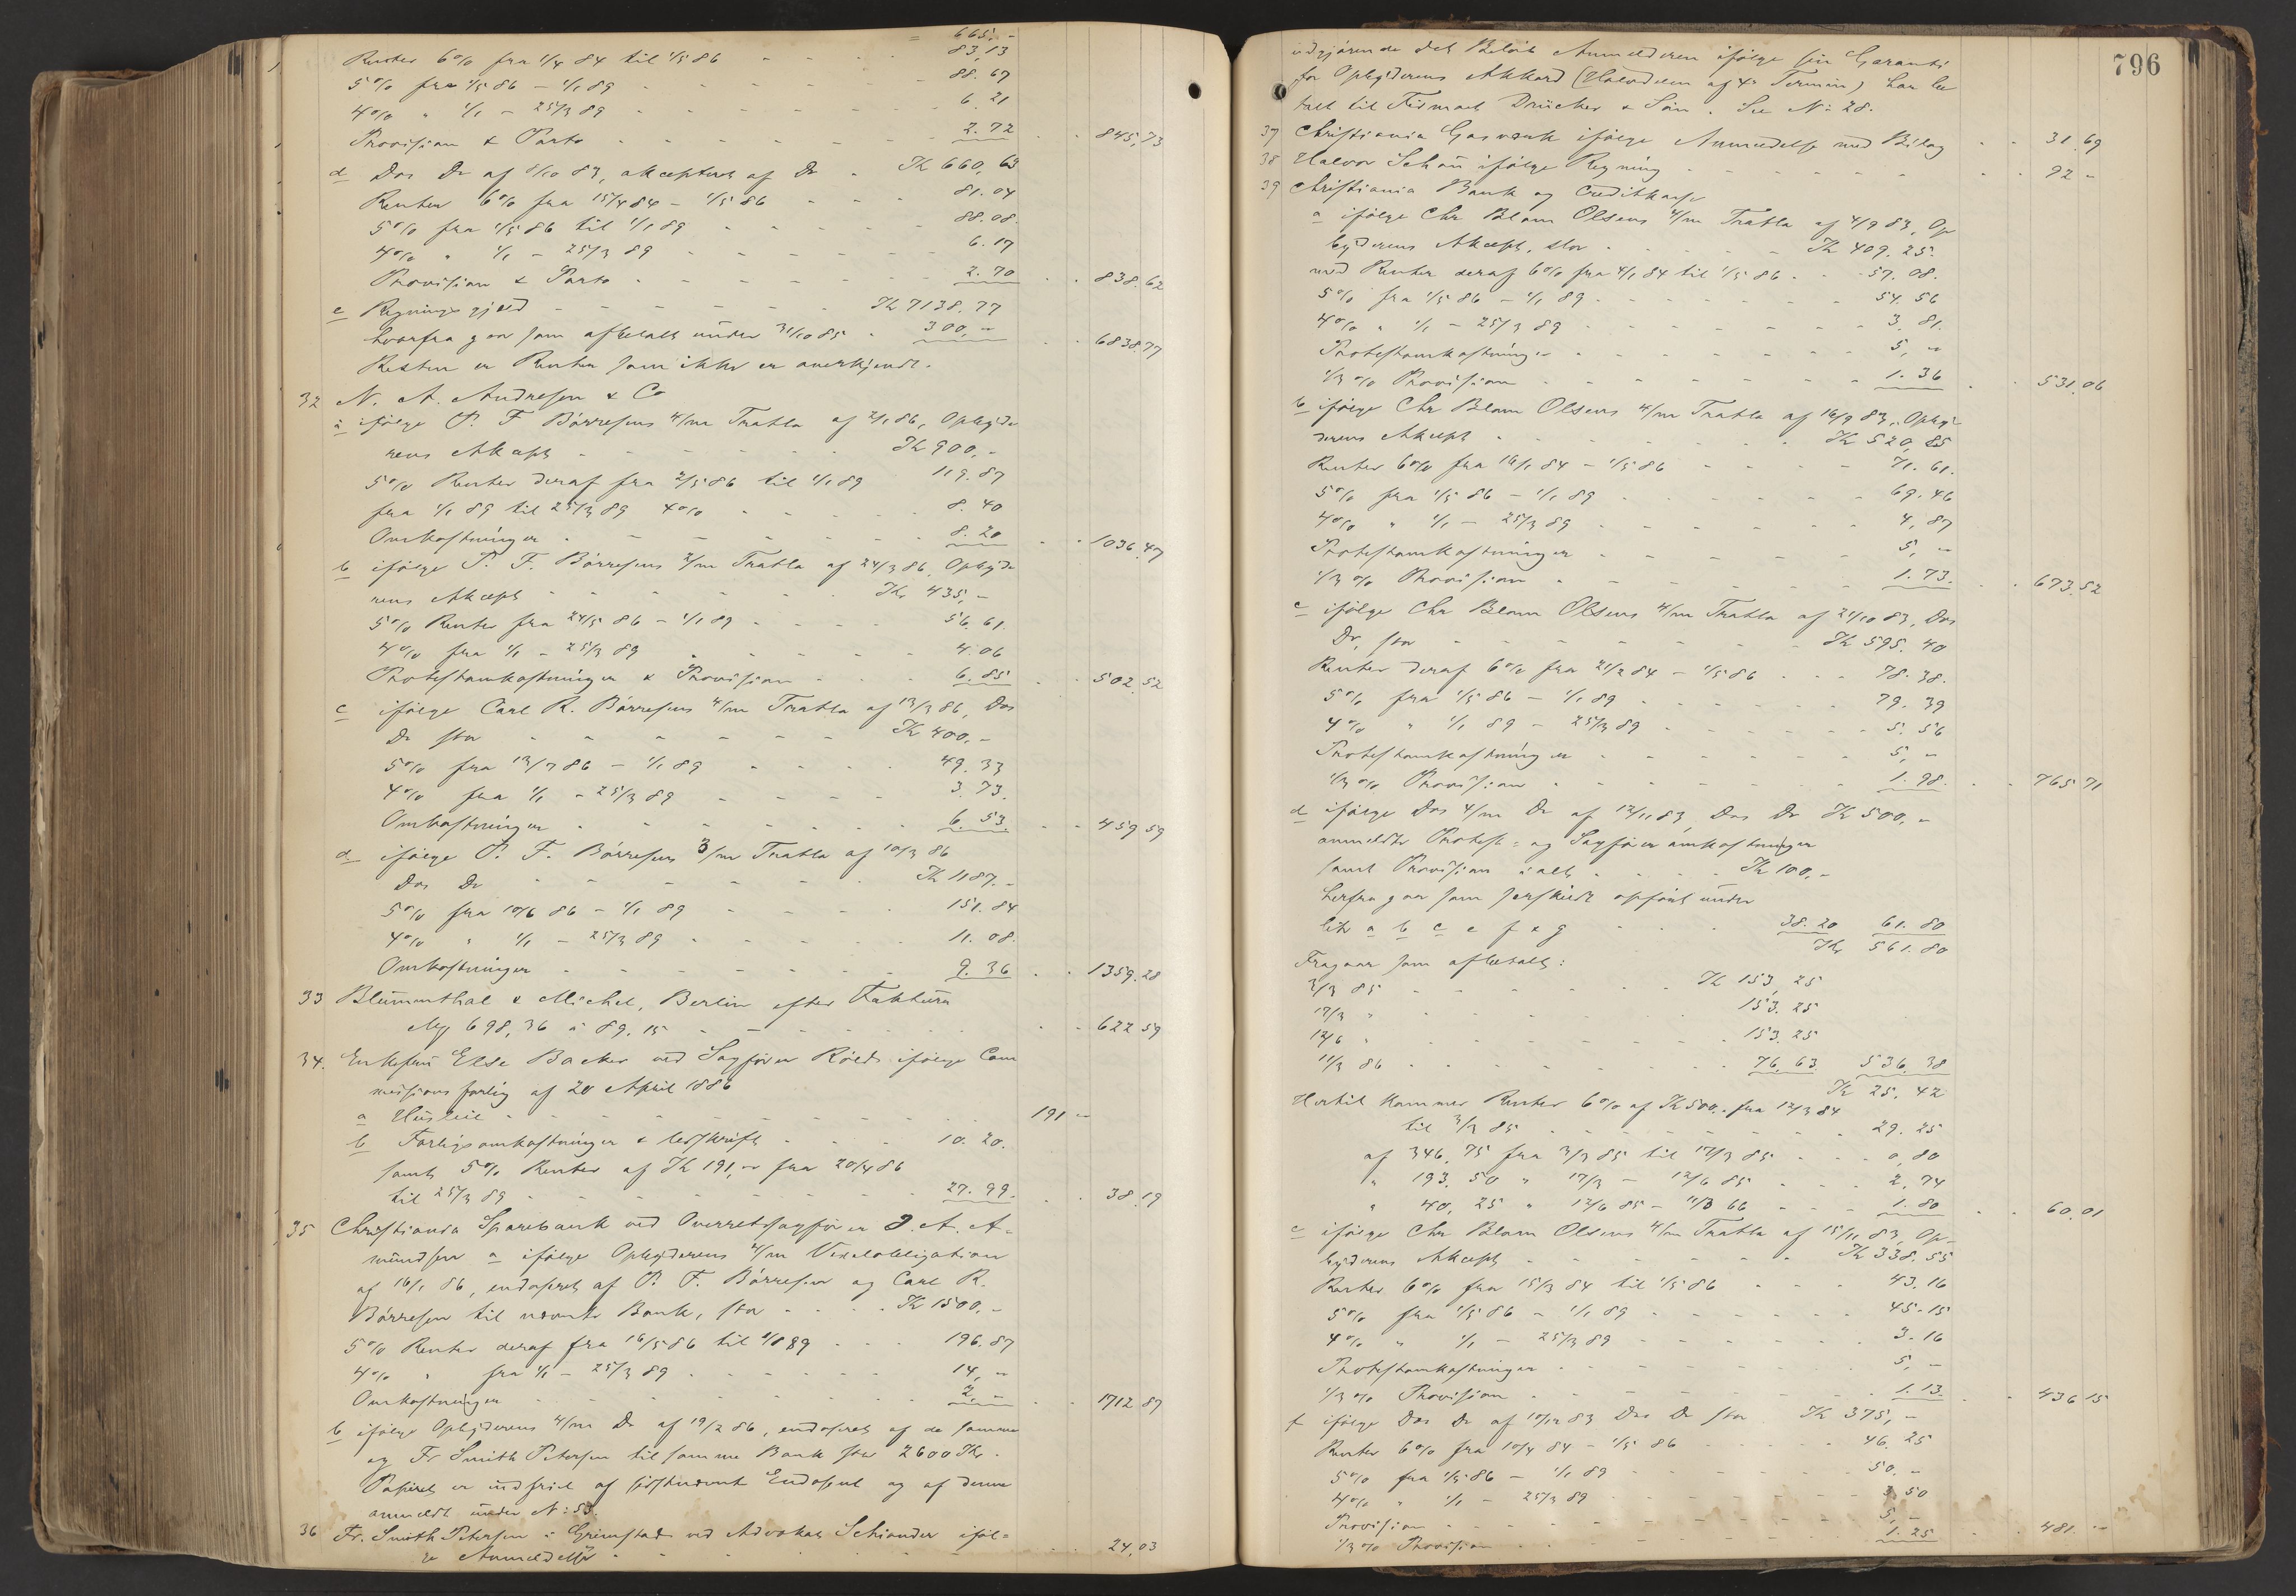 = 665.-
Renter 6% fra 1/4 84 til 1/5 86 - - - 83,13
5% fra 1/5 86 - 1/1 89 - - - 88.67
4% " 1/1 - 25/3 89 - - - 6.21
Provision & Porto - - - 2.72 - - 845,73
d Dos Do af 8/10 83, akcepteret af Do - Kr 660,63
Renter 6% fra 15/4 84 - 1/5 86 - - - 81.04
5% fra 1/5 86 til 1/1 89 - - - 88.08.
4% " 1/1 - 25/3 89 - - - 6.17
Provision & Porto - - - 2.70 - - 838.62
e Regningsgjæld - - - Kr 7138.77
hvorfra gaar som afbetalt under 31/10 85 - 300,- - - 6838.77
Resten er Renter som ikke er anerkjendt.
32 N. A. Andresen & Co
a ifølge P. F. Børresens 4/m Tratta af 2/1 86, Opbyde
rens Akcept - - - Kr 900.-
5% Renter deraf fra 2/5 86 til 1/1 89 119.87
fra 1/1 89 til 25/3 89 4% - - - 8.40
Omkostninger - - - 8.20 - - 1036.47
b ifølge P. F. Børresens 2/m Tratta af 24/3 86, Opbyde
rens Akcept - - - Kr 435,-
5% Renter fra 24/5 86 - 1/1 89 - - - 56.61.
4% fra 1/1 - 25/3 89 - - - 4.06
Protestomkostninger & Provision - - - 6.85 - - 502.52
c ifølge Carl R. Børresens 4/m Tratta af 13/3 86, Dos
Do stor - - - Kr 400.-
5% fra 13/7 86 - 1/1 89 - - - 49.33
4% fra 1/1 - 25/3 89 - - - 3.73.
Omkostninger - - - 6.53. - - 459 59
d ifølge P. F. Børresens 3/m Tratta af 10/3 86
Dos Do - - - Kr 1187.-
5% fra 10/6 86 - 1/1 89 - - - 151.84
4% " 1/1 - 25/3 89 - - - 11.08.
Omkostninger - - - 9.36 - - 1359.28
33 Blümenthal & Michel, Berlin efter Faktura
698,36 a 89.15 - - - 622 59
34. Enkefru Else Backer ved Sagfører Røed ifølge Com
missionsforlig af 20 April 1886
a Husleie - - - 191 -
b Forligsomkostninger & beskrift - - - 10.20.
samt 5% Renter af Kr 191,- fra 20/4 86
til 25/3 89 - - - 27.99. - - 38.19
35 Christiania Sparebank ved Overretssagfører J. A. A-
mundsen a ifølge Opbyderens 4/m Vexelobligation
af 16/1 86, endosseret af P. F. Børresen og Carl R.
Børresen til nævnte Bank, stor - - - Kr 1500.-
5% Renter deraf fra 16/5 86 til 1/1 89 - - - 196.87
4% " fra 1/1 - 25/3 89 - - - 14,-
Omkostninger - - - 2,- - - 1712 87
b ifølge Opbyderens 4/m Do af 19/2 86, endosseret af de samme
og Fr Smith Petersen til samme Bank stor 2600 Kr.
Papiret er indfriet af sidstnævnte Endossent og af denne
anmeldt under No: 53.
36 Fr. Smith Petersen i Grimstad ved Advokat Schiander iføl=
ge Anmeldelse - - - 24,03
796
udgjørende det Beløb Anmelderen ifølge sin Garanti
for Opbyderens Akkord (Halvdelen af 4de Termin) har be
talt til Firmaet Drücker & Søn. Se No: 28.
37 Christiania Gasværk ifølge Anmeldelse med Bilag - - 31.69
38 Halvor Schou ifølge Regning - - - 92 -
39 Christiania Bank og Creditkasse
a ifølge Chr Blom Olsens 4/m Tratta af 4/9 83, Op
byderens Akcept, stor - - - Kr 409.25.
med Renter deraf 6% fra 4/1 84 til 1/5 86 - - 57.08.
5% fra 1/5 86 - 1/1 89 - - - 54.56
4% " 1/1 - 25/3 89 - - - 3.81.
Protestomkostninger - - - 5,-
1/3 % Provision - - - 1.36 - - 531.06
b ifølge Chr Blom Olsens 4/m Tratta af 16/9 83, Opby
derens Akcept - - - Kr 520,85
Renter 6% fra 16/1 84 - 1/5 86 - - - 71.61.
5% fra 1/5 86 - 1/1 89 - - - 69.46
4% " 1/1 - 25/3 89 - - - 4,87
Protestomkostninger - - - 5,-
1/3 % Provision - - - 1.73. - - 673.52
c ifølge Chr Blom Olsens 4/m Tratta af 21/10 83, Dos
Do, stor - - - Kr 595.40
Renter deraf 6% fra 21/2 84 - 1/5 86 - - - 78.38.
5% fra 1/5 86 - 1/1 89 - - - 79.39
4% " 1/1 89 - 25/3 89 - - - 5.56
Protestomkostninger - - - 5,-
1/3 % Provision - - - 1.98. - - 765 71
d ifølge Dos 4/m Do af 12/11 83, Dos Do Kr 500,-
anmeldte Protest- og Sagføreromkostninger
samt Provision ialt - - - Kr 100,-
herfra gaar som særskilt opført under
litr a b c e f & g - - - 38.20 61.80
Kr 561.80
Fragaar som afbetalt:
3/3 85 - - - Kr 153,25
17/3 " - - - 153.25
12/6 " - - - 153.25
11/3 86 - - - 76.63. 536.38
Kr 25.42
Hertil kommer Renter 6% af Kr 500.- fra 12/3 84
til 3/3 85 - - - 29.25
af 346,75 fra 3/3 85 til 17/3 85 - - - 0,80
" 193.50 " 17/3 - 12/6 85 - - - 2,74
" 40,25 " 12/6 85 - 11/3 86 - - - 1.80 - - 60.01
e ifølge Chr Blom Olsens 4/m Tratta af 15/11 83, Op-
byderens Akcept - - - Kr 338.55
Renter 6% fra 15/3 84 til 1/5 86 - - - 43.16
5% fra 1/5 86 - 1/1 89 - - - 45.15
4% " 1/1 - 25/3 89 - - - 3.16
Protestomkostninger - - - 5,-
1/3 % Provision - - - 1.13. - - 436 15
f ifølge Dos Do af 10/12 83 Dos Do stor Kr 375,-
Renter 6% fra 10/4 84 - 1/5 86 - - - 46.25
5% fra 1/5 86 - 1/1 89 - - - 50.-
4% " 1/1 - 25/3 89 - - - 3.50
Provision - - - 5,-
1/3 % Provision - - - 1.25 - - 481.-